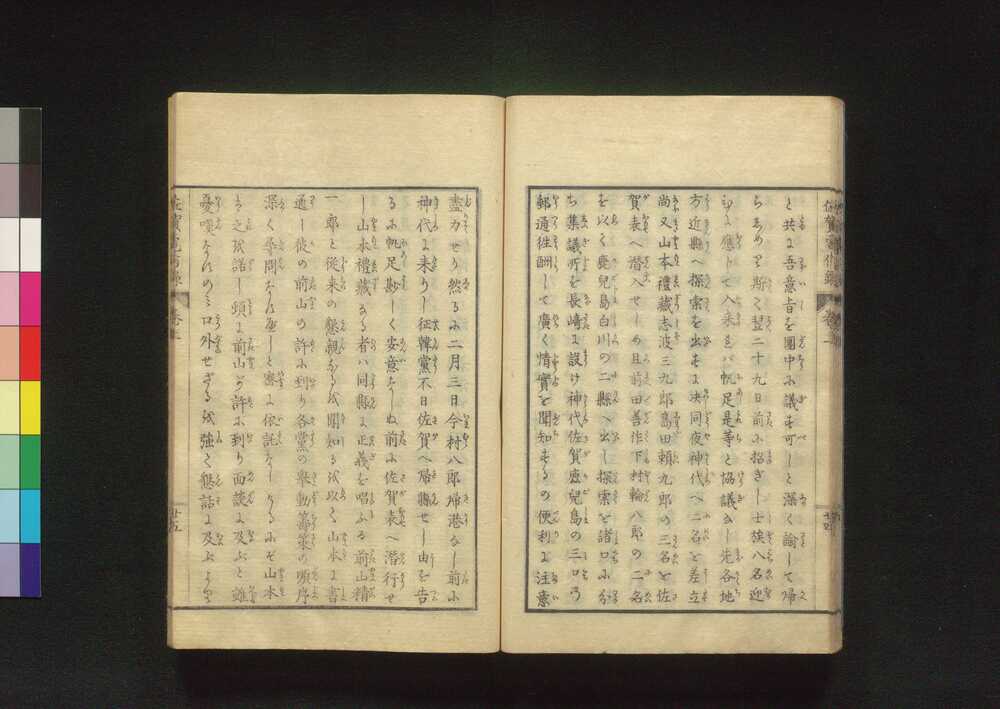 と共に吾意旨を團中に議す可しと深く諭して歸
らしめり斯く翌二十九日前に招ぎし士族八名迎
に應じて入来れバ帆足是等と協議なし先各地
方近縣へ探索を出すに决同夜神代へ二名を差立
尚又山本禮藏志波三九郎島田頼九郎の三名を佐
賀表へ潜入せしめ且前田善作下村輪八郎の二名
を以く鹿兒島白川の二縣へ出し探索を諸口に分
ち集議所を長崎に設け神代佐賀鹿兒島の三口
郵通徃酬して廣く情實を聞知するの便利に注意
盡力せり然るに二月三日今村八郎帰港なし前に
神代に来りし征韓黨不日佐賀へ帰縣せし由を告
るに帆足勘しく安意をしぬ前に佐賀表へ潜行せ
し山本禮藏なる者ハ同縣に正義を唱ふる前山精
一郎と従来の懇親なるを聞知るを以く山本に書
通し彼の前山の許に到り各黨の舉動籌策の順序
深く尋問なす可しと密に依託なしけるにぞ山本
之を諾し頓に前山の許に到り面談に及ぶと雖
憂嘆なすのミ口外せざるを強く懇話に及ぶより
巻一
廿五